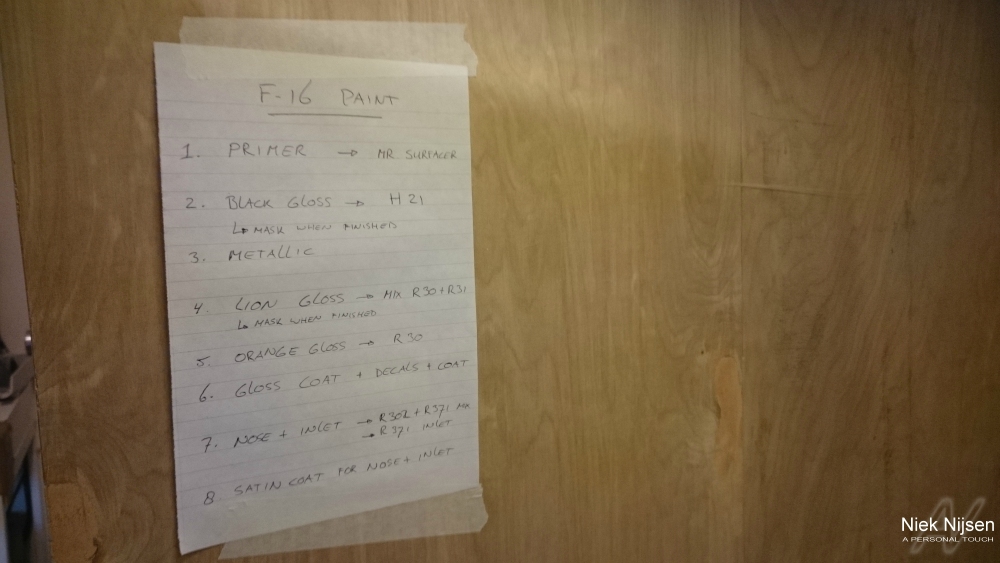 F-16 PAINT
1. PRIMER → MR SURFACER
2. BLACK GLOSS → H 21
↳ MASK WHEN FINISHED
3. METALLIC
4. LION GLOSS → MIX R30+R31
↳ MASK WHEN FINISHED
5. ORANGE GLOSS → R 30
6. GLOSS COAT + DECALS + COAT
7. NOSE + INLET → R302 + R371 MIX
→ R371 INLET
8 SATIN COAT FOR NOSE + INLET
Niek Nijsen
A PERSONAL TOUCH